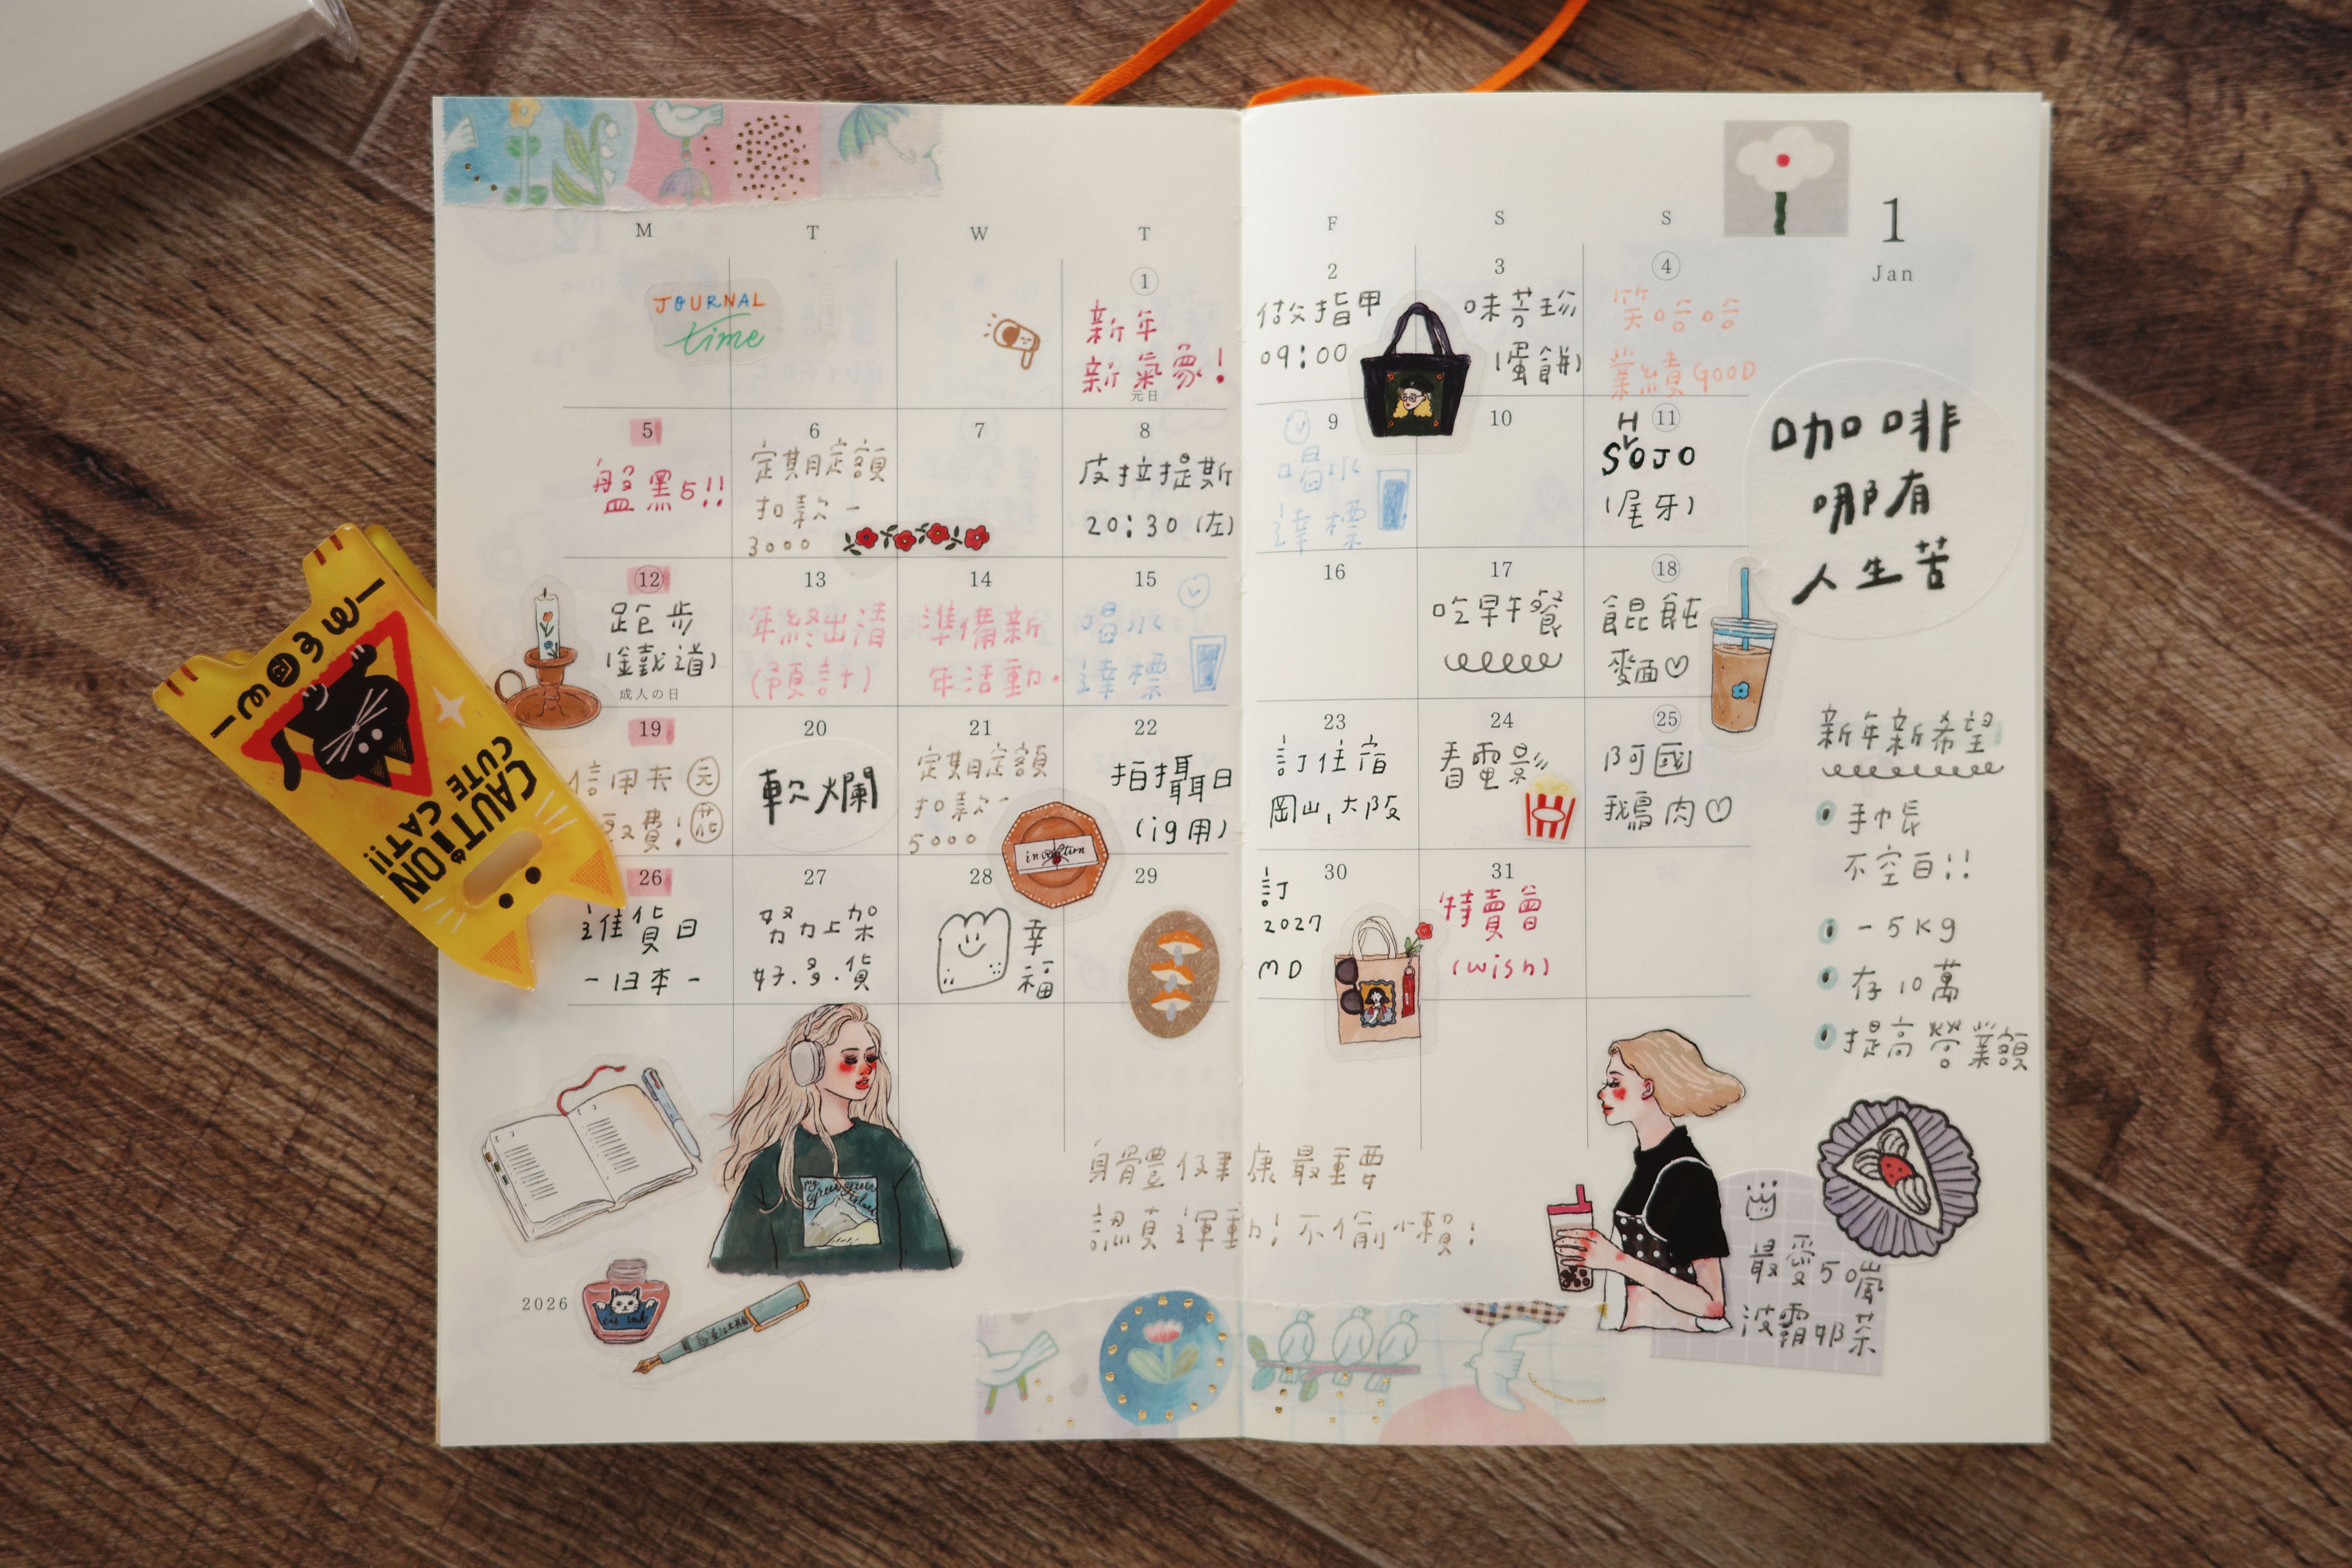 M T W T F S S
1
Jan
JOURNAL
time
1
新年
新氣象!
元日
2
做指甲
09:00
3
味芳珍
(蛋餅)
4
笑哈哈
業績GOOD
咖啡
哪有
人生苦
5
盤黑5!!
6
定期定額
扣款-
3000
7
8
皮拉提斯
20:30 (左)
9
喝水
達標
10
11
HySOJO
(尾牙)
12
跑步
(鐵道)
成人の日
13
年終出清
(預計)
14
準備新
年活動.
15
喝水
達標
16
17
吃早午餐
18
餛飩
麥面♡
19
信用卡 元
費! 花
20
軟爛
21
定期定額
扣款-
5000
22
拍攝日
(ig用)
23
訂住宿
岡山,大阪
24
看電影
25
阿國
鵝肉♡
26
進貨日
-日本-
27
努力上架
好.多.貨
28
幸
福
29
30
訂
2027
MD
31
特賣會
(wish)
新年新希望
手帳
不空白!!
-5Kg
存10萬
提高營業額
meow
CAUTiON
CUTE CAT!!
身體健康最重要
認真運動!不偷懶!
最愛50嵐
波霸奶茶
2026
cat ink